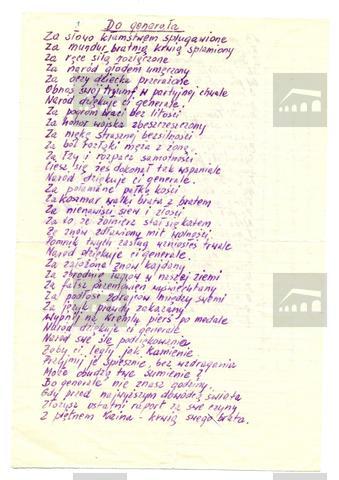 Do generała
Za słowo kłamstwem splugawione
Za mundur bratnią krwią splamiony
Za ręce siłą rozłączone
Za naród głodem umęczony
Za oczy dziecka przerażone
Obnoś swój tryumf w partyjnej chwale
Naród dziękuje ci generale.
Za pogrom braci bez litości
Za honor wojska zbeszczeszczony
Za mękę strasznej bezsilności
Za ból rozłąki męża z żoną
Za łzy i rozpacz samotności
Ciesz się żeś dokonał tak wspaniale
Naród dziękuje ci generale.
Za połamane pałką kości
Za koszmar walki brata z bratem
Za nienawiści siew i złości
Za to że żołnierz stał się katem
Że znów zdławiony mit wolności
Pomnik twych zasług wzniosłeś trwale
Naród dziękuje ci generale.
Za założone znów kajdany
Za zbrodnie łagrów w naszej ziemi
Za fałsz przemówień wyświechtany
Za podłość zdrajców między swymi
Za język prawdy zakazany
Wypnij na Kremlu pierś po medale
Naród dziękuje ci generale
Naród swe śle podziękowania
Żeby ci legły jak kamienie
Przyjmij je śpiesznie, bez wzdragania
Może obudzą twe sumienie?
Bo generale nie znasz godziny
Gdy przed najwyższym dowódcą świata
Złożysz ostatni raport za swe czyny
Z piętnem Kaina - krwią swego brata.